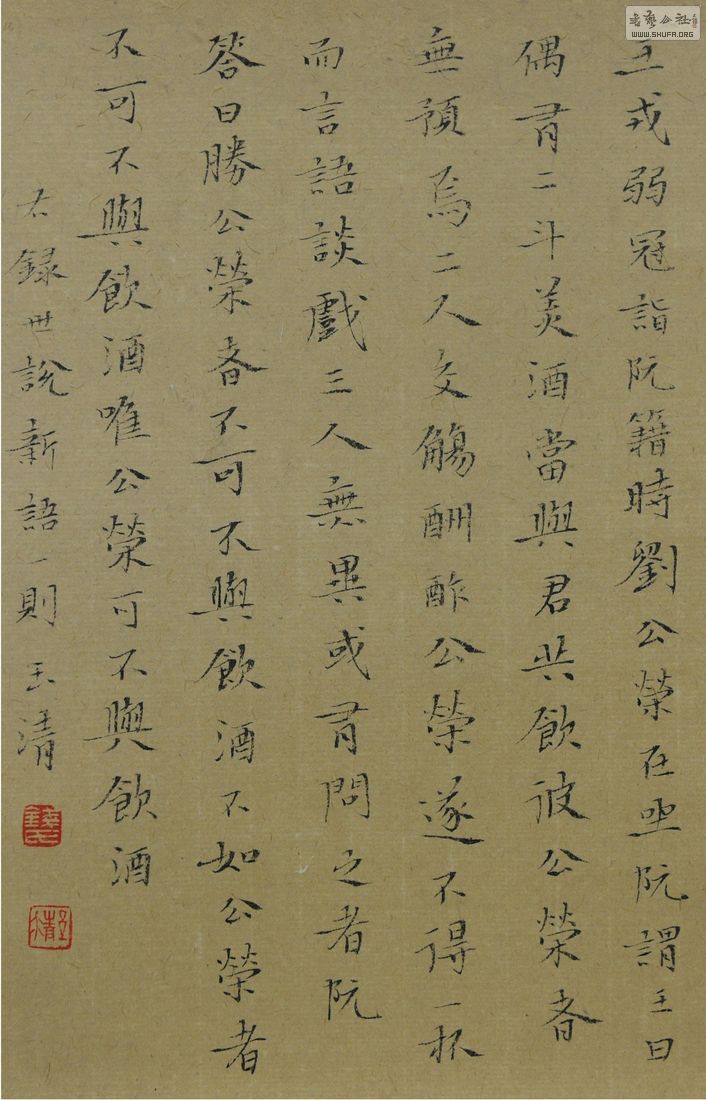 王戎弱冠詣阮籍時劉公榮在坐阮謂王曰
偶有二斗美酒當與君共飲彼公榮者
無預焉二人交觴酬酢公榮遂不得一杯
而言語談戲三人無異或有問之者阮
答曰勝公榮者不可不與飲酒不如公榮者
不可不與飲酒唯公榮可不與飲酒
右錄世說新語一則 清
書藝公社
WWW.SHUFA.ORG